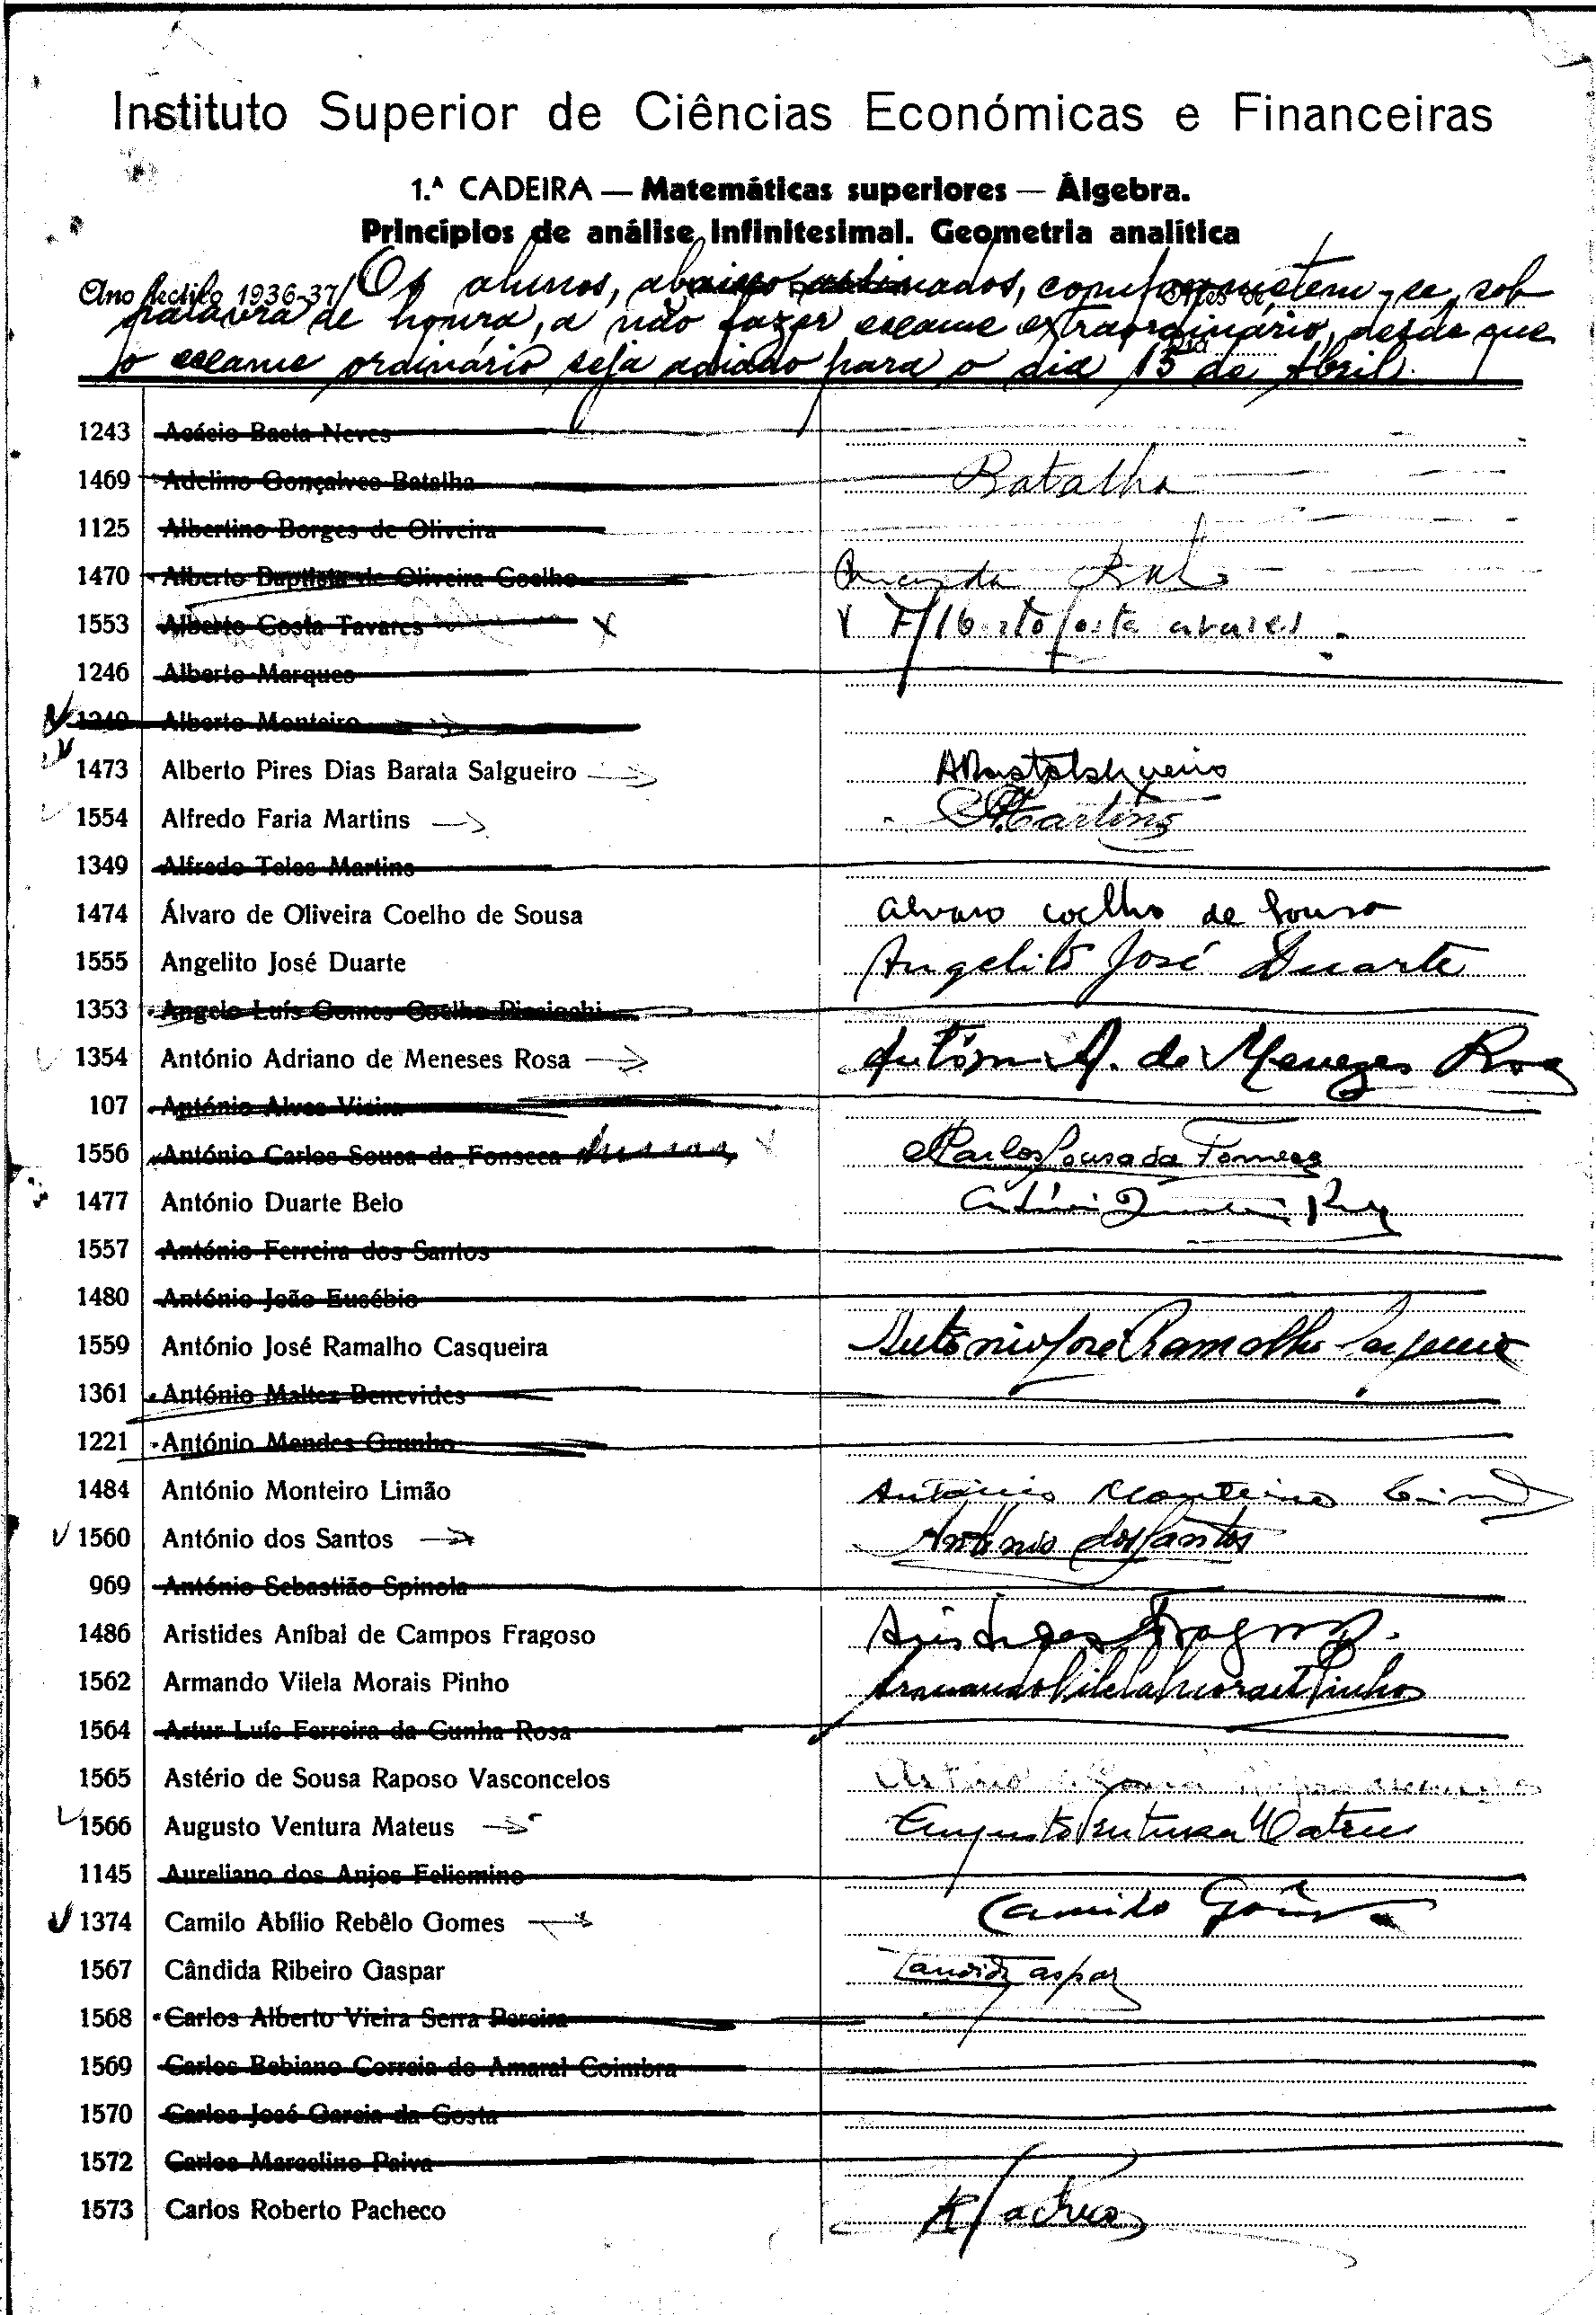 Instituto Superior de Ciências Económicas e Financeiras
1.ª CADEIRA — Matemáticas superiores — Álgebra.
Princípios de análise infinitesimal. Geometria analítica
Ano lectivo 1936-37 Os alunos, abaixo assinados, comprometem-se, sob
palavra de honra, a não fazer exame extraordinário, desde que
o exame ordinário seja adiado para o dia 15 de Abril.
1243 Acácio Baeta Neves
1469 Adelino Gonçalves Batalha Batalha
1125 Albertino Borges de Oliveira
1470 Alberto Baptista de Oliveira Coelho
1553 Alberto Costa Tavares X
1246 Alberto Marques
1249 Alberto Monteiro
1473 Alberto Pires Dias Barata Salgueiro
1554 Alfredo Faria Martins Martins
1349 Alfredo Teles Martins
1474 Álvaro de Oliveira Coelho de Sousa Alvaro Coelho de Sousa
1555 Angelito José Duarte Angelito José Duarte
1353 Angelo Luís Gomes Coelho Picciochi
1354 António Adriano de Meneses Rosa António A. de Menezes Rosa
107 António Alves Vieira
1556 António Carlos Sousa da Fonseca Carlos Sousa da Fonseca
1477 António Duarte Belo
1557 António Ferreira dos Santos
1480 António João Eusébio
1559 António José Ramalho Casqueira António José Ramalho Casqueira
1361 António Maltez Benevides
1221 António Mendes Grunho
1484 António Monteiro Limão António Monteiro Limão
1560 António dos Santos António dos Santos
969 António Sebastião Spinola
1486 Aristides Aníbal de Campos Fragoso Aristides Fragoso
1562 Armando Vilela Morais Pinho Armando Vilela Morais Pinho
1564 Artur Luís Ferreira da Cunha Rosa
1565 Astério de Sousa Raposo Vasconcelos
1566 Augusto Ventura Mateus Augusto Ventura Mateus
1145 Aureliano dos Anjos Felismino
1374 Camilo Abílio Rebêlo Gomes Camilo Gomes
1567 Cândida Ribeiro Gaspar Candida Gaspar
1568 Carlos Alberto Vieira Serra Pereira
1569 Carlos Bebiano Correia do Amaral Coimbra
1570 Carlos José Garcia da Costa
1572 Carlos Marcelino Paiva
1573 Carlos Roberto Pacheco